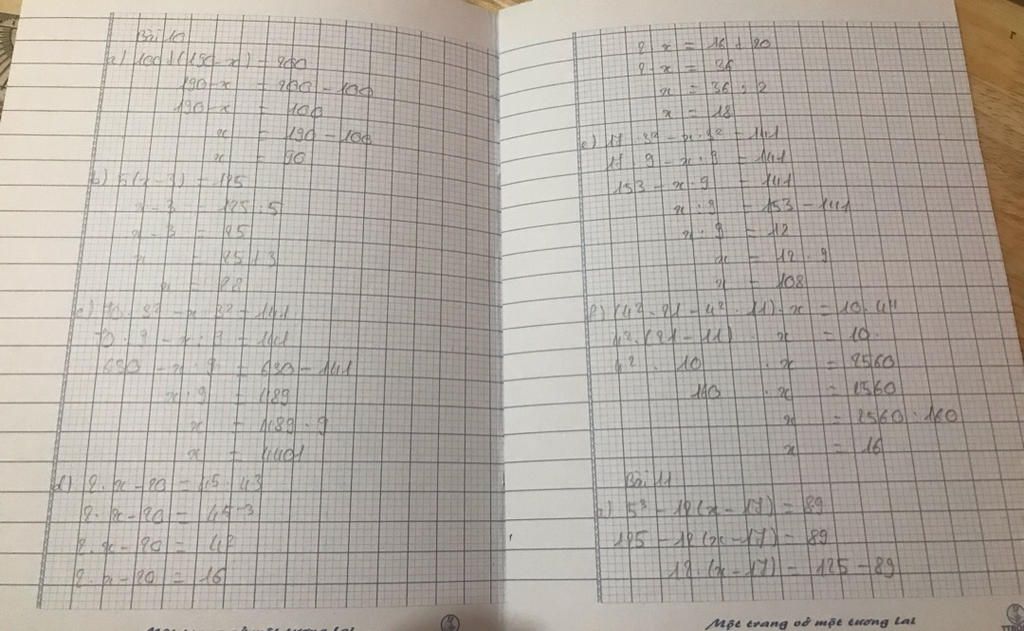 Bài 10
a) 100 + (190 - x) = 200
190 - x = 200 - 100
190 - x = 100
x = 190 - 100
x = 90
b) 5(x - 3) = 125
x - 3 = 125 : 5
x - 3 = 25
x = 25 + 3
x = 28
c) 70 . 3² - x : 3² = 141
70 . 9 - x : 9 = 141
630 - x : 9 = 630 - 141
x : 9 = 489
x = 489 . 9
x = 4401
d) 2 . x - 20 = 4⁵ : 4³
2 . x - 20 = 4⁵⁻³
2 . x - 20 = 4²
2 . x - 20 = 16
Một trang vở một tương lai
2 x = 16 + 20
2 . x = 36
x = 36 : 2
x = 18
e) 17 . 3² - x : 3² = 141
17 . 9 - x : 9 = 141
153 - x : 9 = 141
x : 9 = 153 - 141
x : 9 = 12
x = 12 . 9
x = 108
f) (4² . 21 - 4² . 11) . x = 10 . 4⁴
4² . (21 - 11) . x = 10 .
4² . 10 . x = 2560
160 . x = 2560
x = 2560 : 160
x = 16
Bài 11
a) 5³ - 12(x - 17) = 89
125 - 12(x - 17) = 89
12 . (x - 17) = 125 - 89
Một trang vở một tương lai